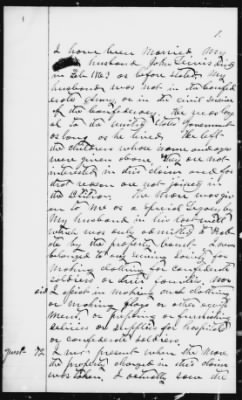 1.
I have been married. My
husband John Lewis died
in Feb 1863 as before stated. My
husband was not in the Confed-
erate Army, or in the civil service
of the Confederacy. He was loy-
al to the United States Government
as long as he lived. He left
the children whose names and ages
were given above. They are not
interested in this claim and for
that reason are not joined in
the petition. 
to me as a special Legacy by
My husband in his last will
which was only admitted to Pro-
bate by the probate court. I never
belonged to any sewing society for
making clothing for confederate
soldiers or their families. Nor
did I assist in making such clothing
or making flags or other equip-
ment, or preparing or furnishing
delicacies or supplies for hospitals
or confederate soldiers.
Quest. 72. I was present when the
the property charged in this claim
was taken, I actually saw the